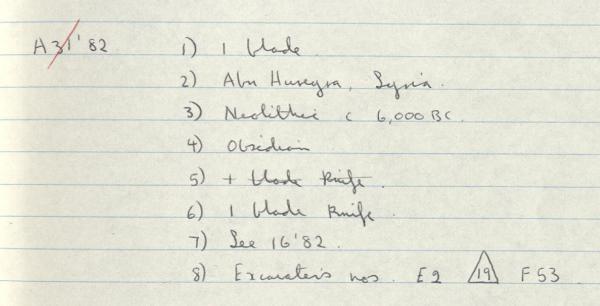 A31'82 1) 1 blade.
2) Abu Hureyra, Syria.
3) Neolithic c 6,000 BC.
4) Obsidian
5) + blade knife.
6) 1 blade knife.
7) See 16'82.
8) Excavater's nos. E2 19 F53